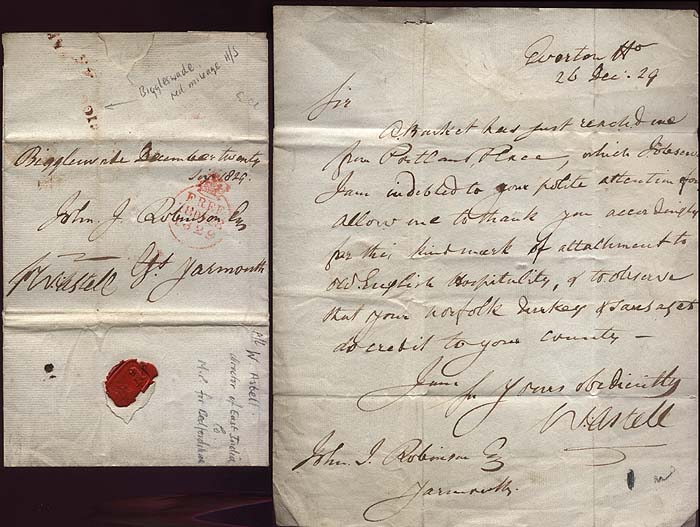 Biggleswade
red mileage H/S
Biggleswade December twenty
Six 1829.
FREE
1829
John. J. Robinson Esq
Gt. Yarmouth
WAstell
W. Astell
director of East India
Co
M.P. for Bedfordshire
Everton Ho
26 Dec: 29
Sir
A Basket has just reached me
from Portland Place, which I
I am indebted to your polite attention
allow me to thank you accordingly
for this kind mark of attachment to
old English Hospitality, & to observe
that your norfolk Turkey & Sausages
do credit to your county —
I am Yours obediently
WAstell
John. J. Robinson Esq
Yarmouth.